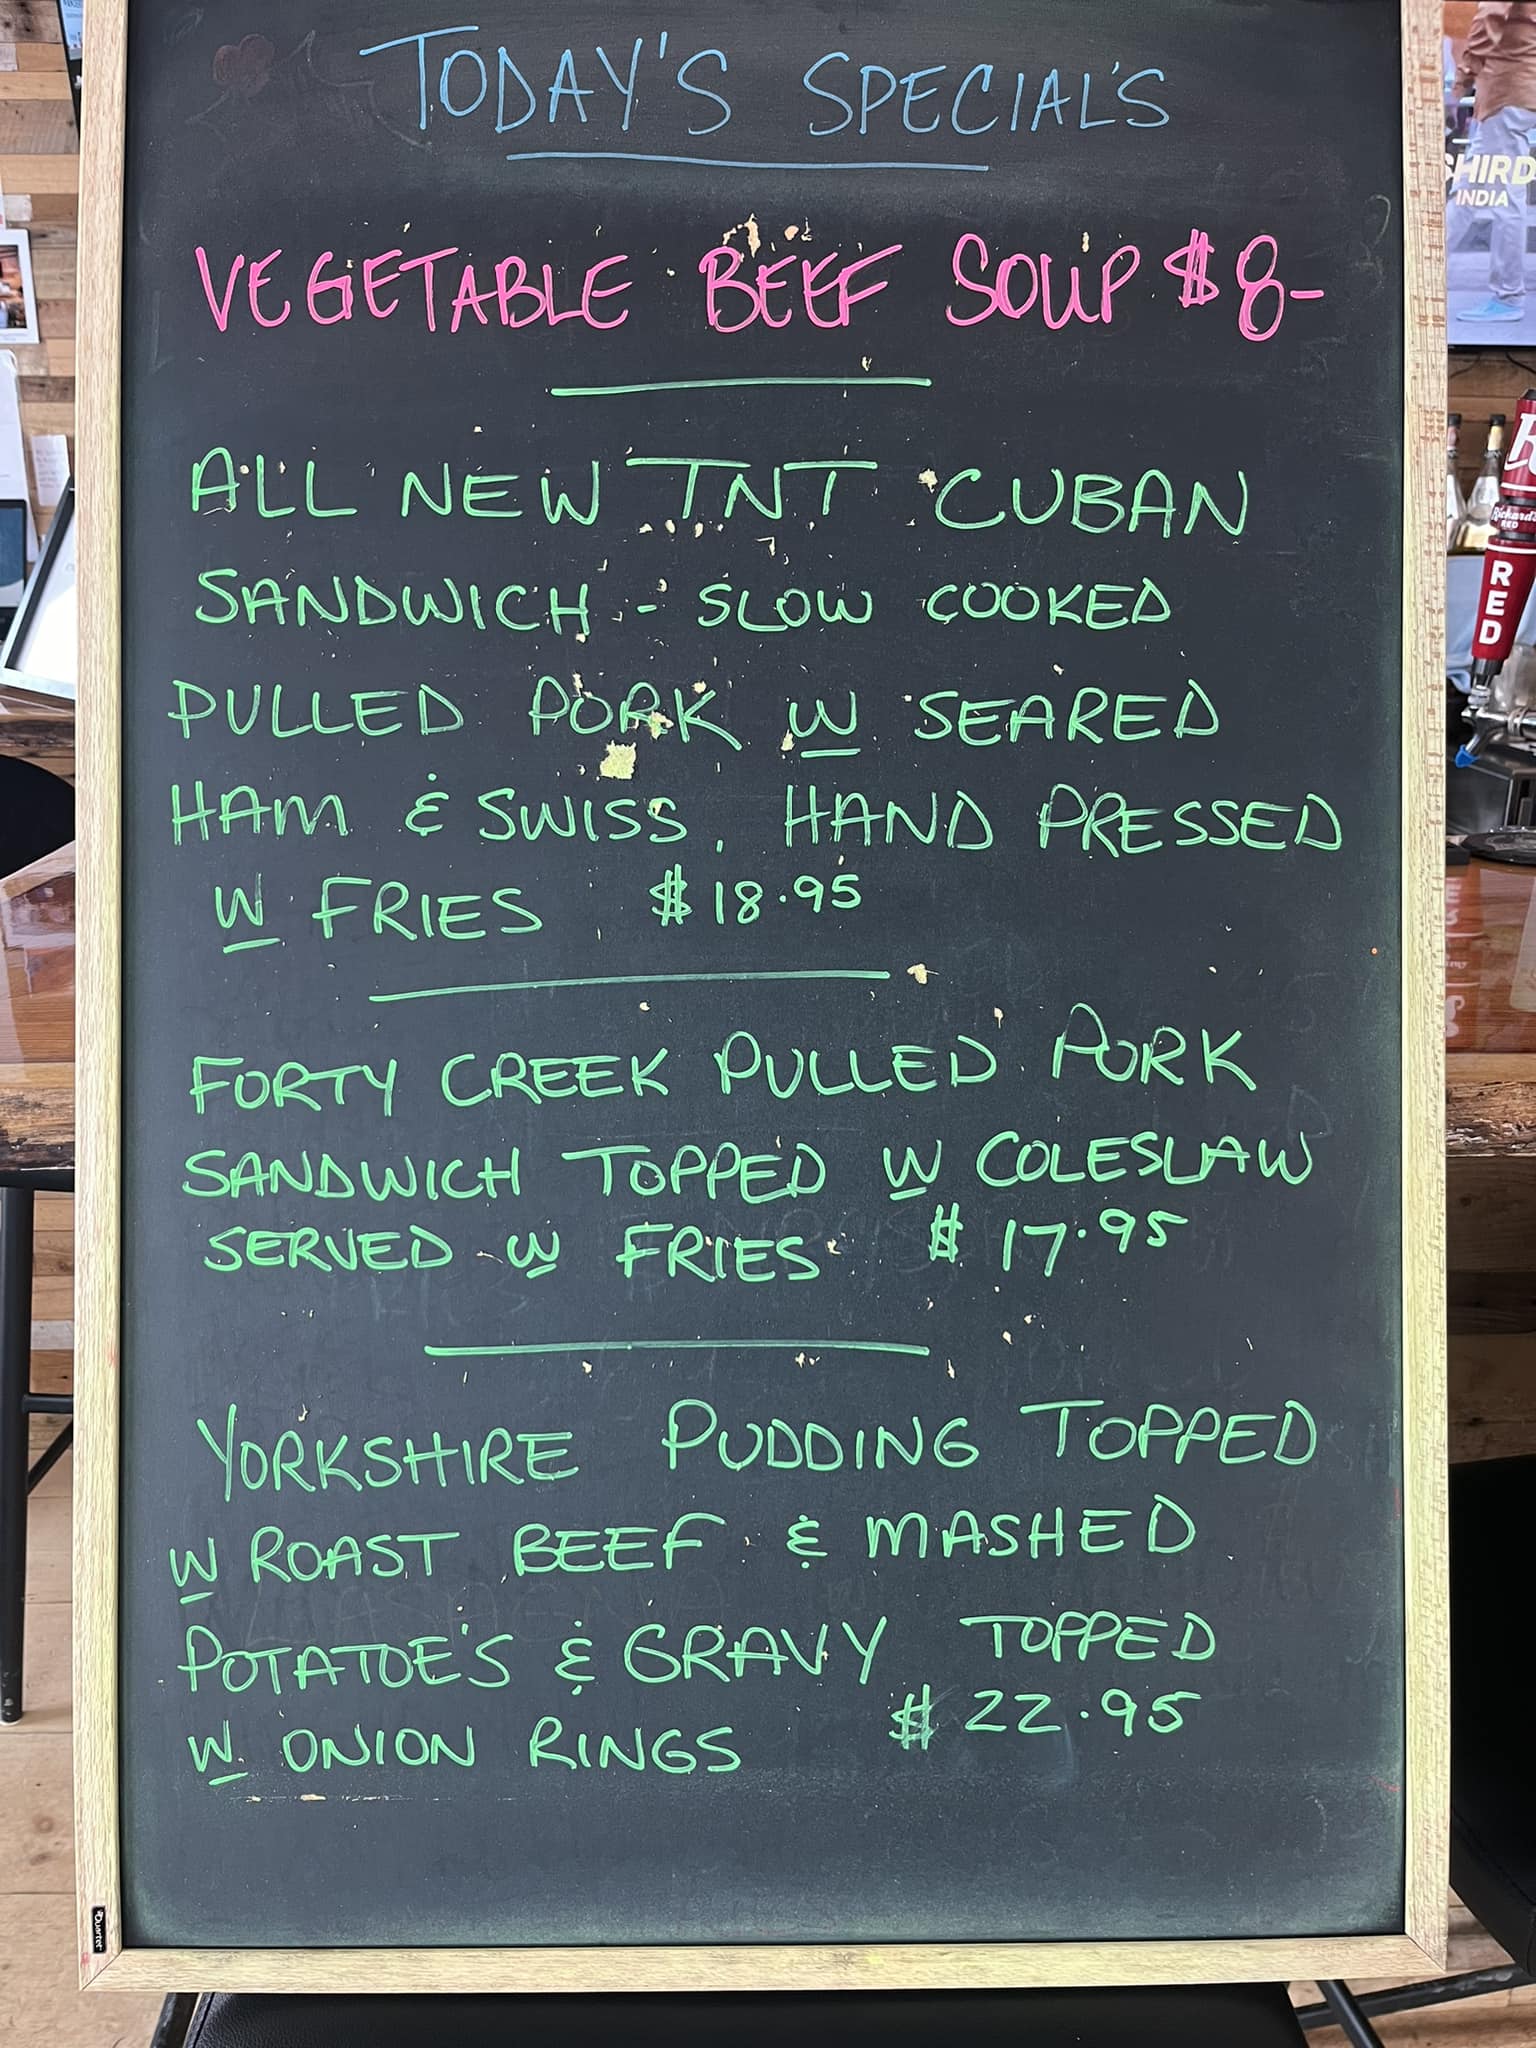 TODAY'S SPECIAL'S
VEGETABLE BEEF SOUP $8-
ALL NEW TNT CUBAN
SANDWICH - SLOW COOKED
PULLED PORK W SEARED
HAM & SWISS, HAND PRESSED
W FRIES $18.95
FORTY CREEK PULLED PORK
SANDWICH TOPPED W COLESLAW
SERVED W FRIES $17.95
YORKSHIRE PUDDING TOPPED
W ROAST BEEF & MASHED
POTATOE'S & GRAVY TOPPED
W ONION RINGS $22.95
SHIRD
INDIA
Rickard's
RED
RED
Quartet